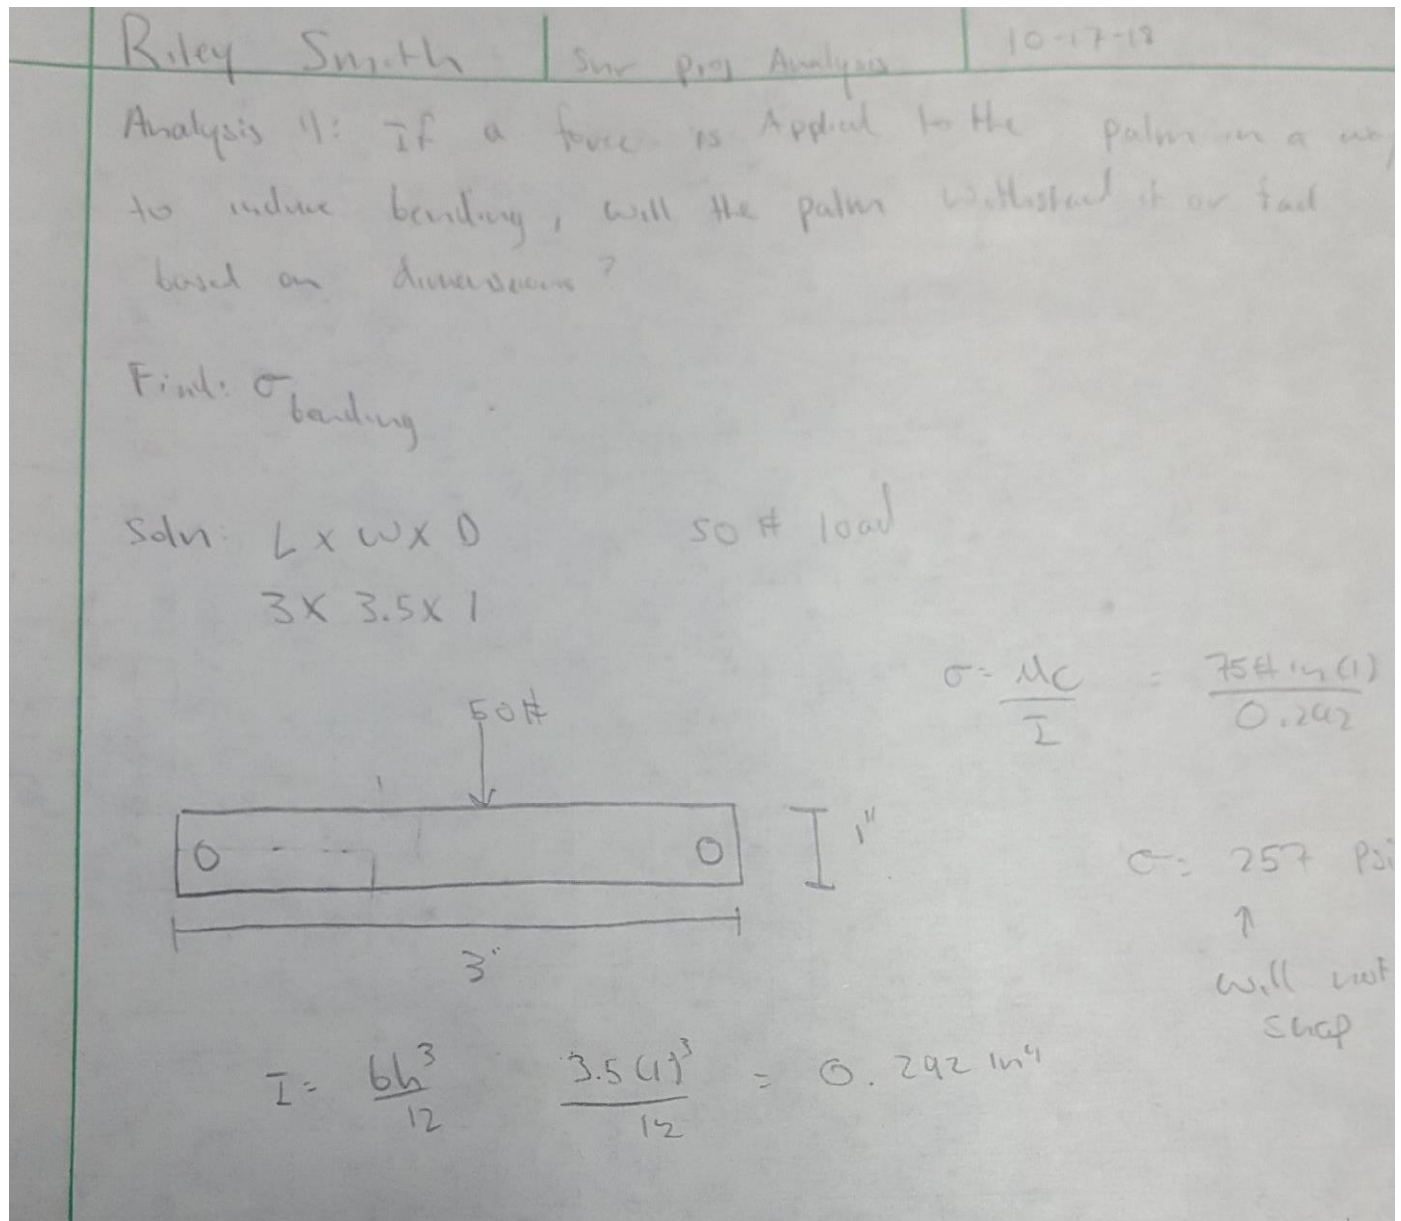 Riley Smith
Snr Proj Analysis
10-17-18
Analysis 11: If a force is Applied to the palm in a way
to induce bending, will the palm withstand it or fail
based on dimensions?
Find: σ bending
Soln: L x W x D
50 # load
3 x 3.5 x 1
σ = Mc / I = 75 # in (1) / 0.292
50 #
1"
σ = 257 Psi
3"
↑
will not
snap
I = bh³ / 12 3.5 (1)³ / 12 = 0.292 in⁴